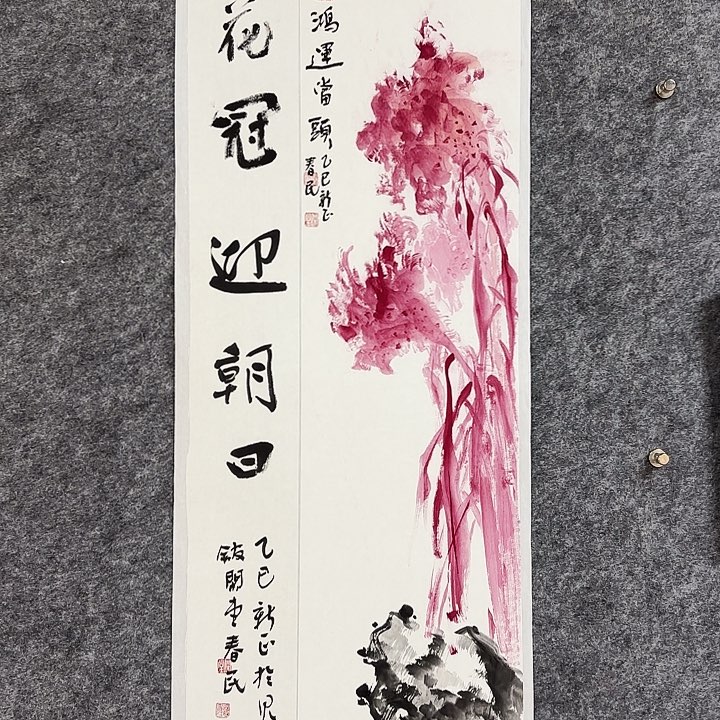 鴻運當頭
乙巳新正
春民
花冠迎朝日
乙巳新正於
春民